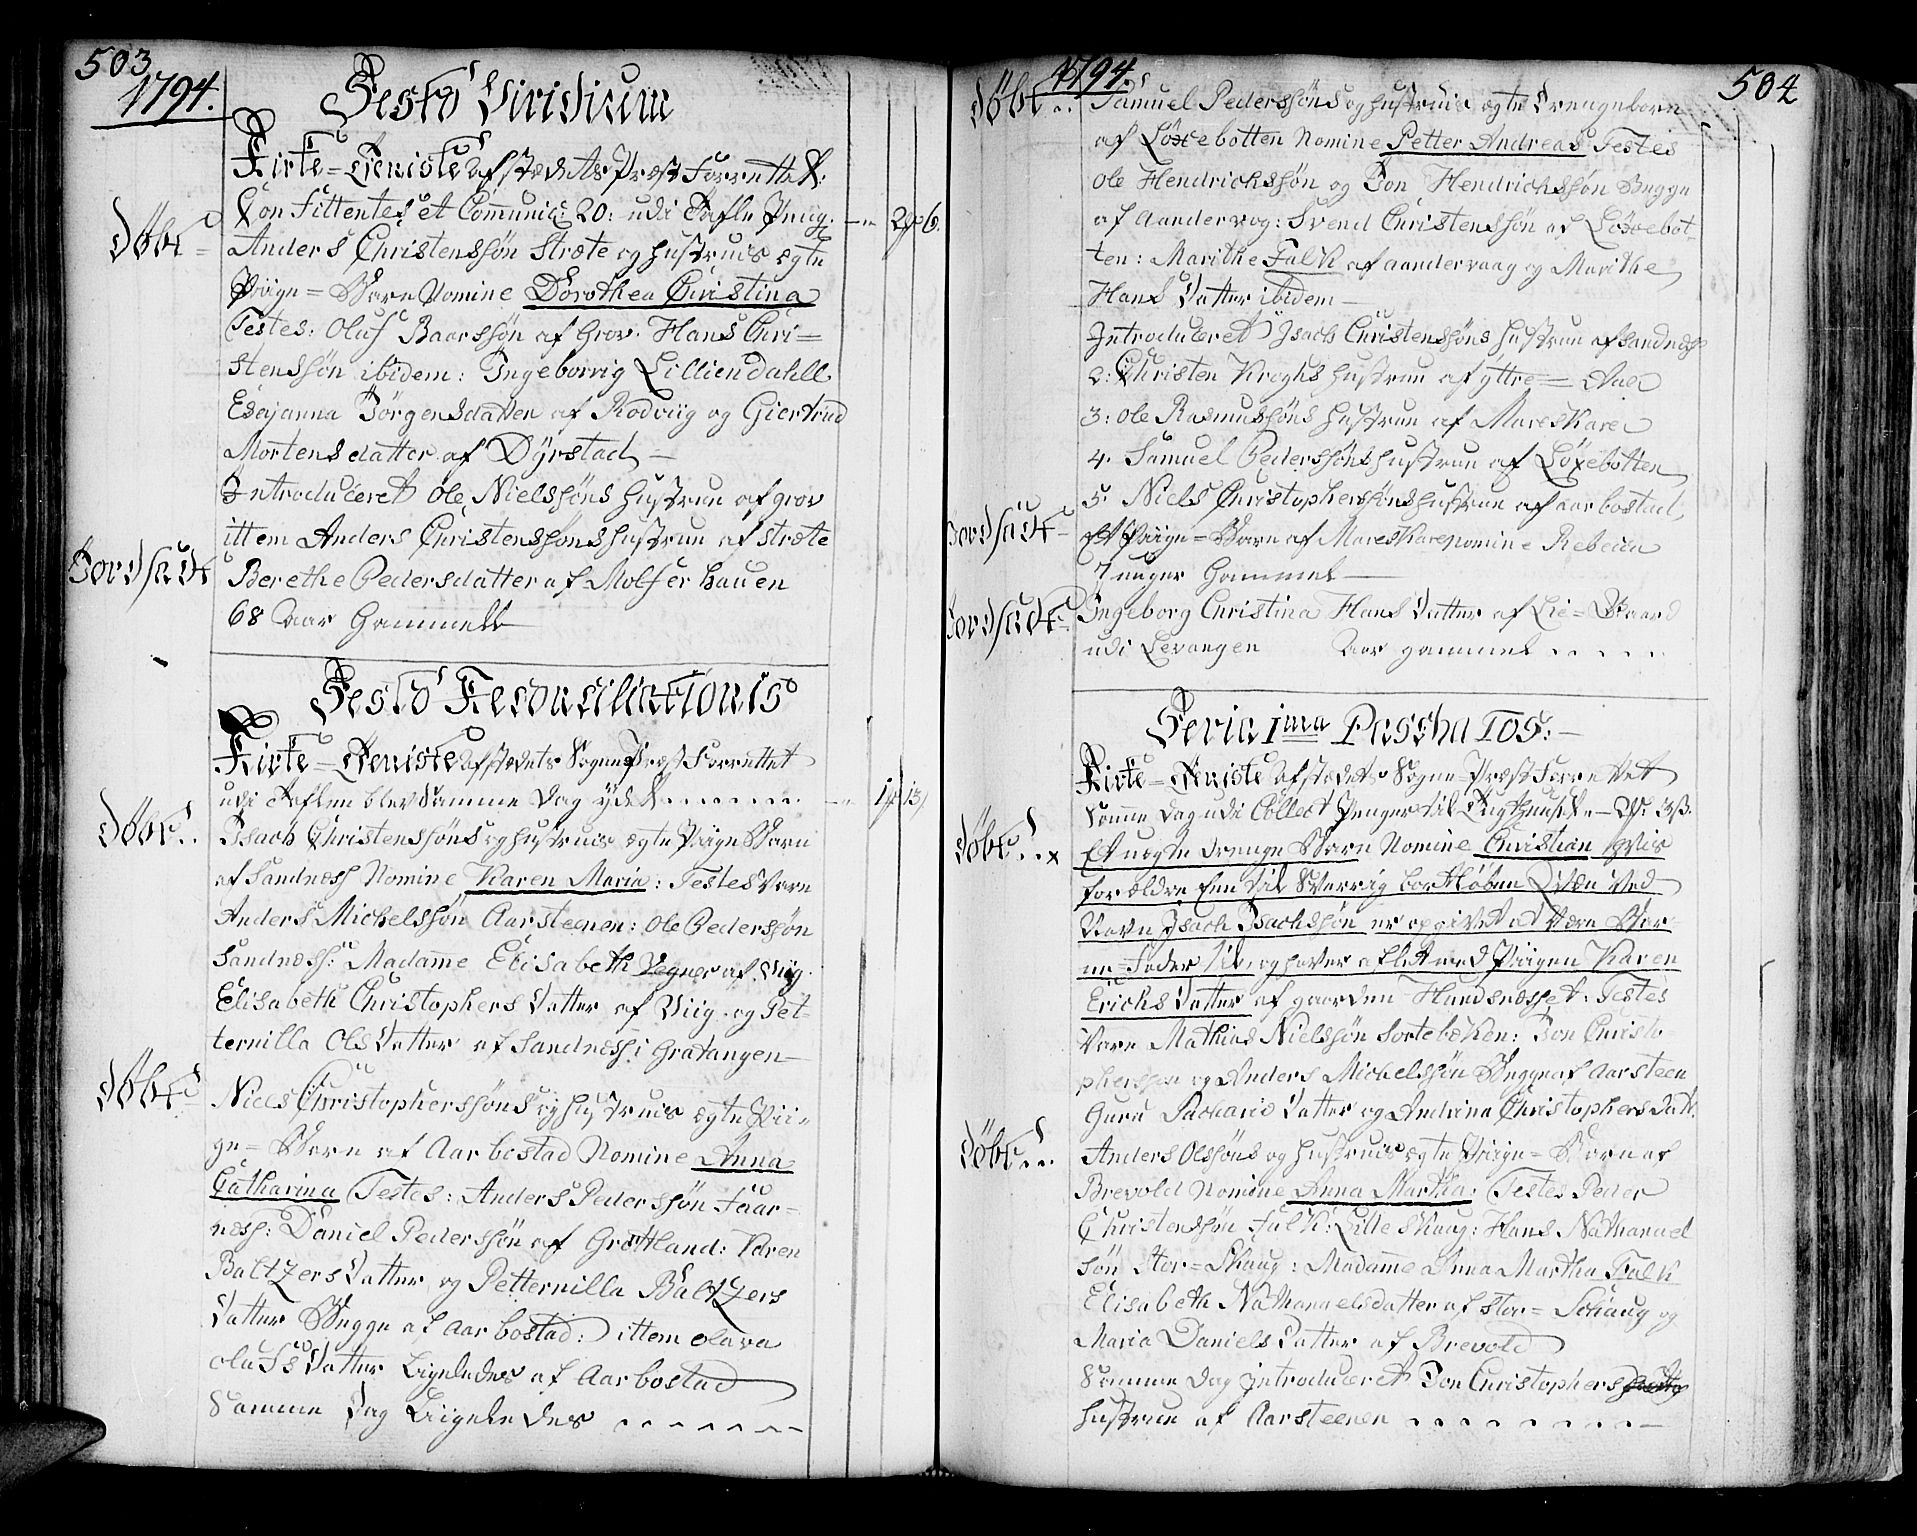 503
1794.
Festo Viridium
Kirke-Tieniste af stædets Præst Forrettet.
Confittentes et Communic: 20: udi Tafle Peng. -- 2 - 6.
Døbt
Anders Christenssøn Stræte og hustrues ægte
Piige-Barn Nomine Dorothea Christina
Testes: Oluf Baarssøn af Grov. Hans Chri=
stenssøn ibidem: Ingeborrig Lilliendahll
Esajanna Jörgensdatter af Rodviig og Giertrud
Mortensdatter af Dyrstad
Introduceret Ole Nielssøns hustrue af grov
ittem Anders Christenssøns hustrue af stræte
Jordsadt
Berethe Pedersdatter af Molferhauen
68 Aar Gammell
Festo Reconciliationis
Kirke-Tieniste af stædets Sogne Præst Forrettet
udi Taflen blev Samme Dag ydet -- 1 - 13
Døbt
Isach Christenssøns og hustrues ægte Piige Barn
af Sandness Nomine Karen Maria: Testes Vare
Anders Michelssøn Aarsteenen: Ole Pederssøn
Sandness: Madamme Elisabeth Wegner af Viig.
Elisabeth Christophers Datter af Viig og Pet-
ternilla Ols Datter af Sandness i Gratangen
Døbt
Niels Christopherssøns og hustrues ægte Pii-
ge-Barn af Aarbostad Nomine Anna
Catharina Testes: Anders Pederssøn Faar-
ness: Daniel Pederssøn af Grøtland: Karen
Baltzers Datter og Petternilla Baltzers
Datter Begge af Aarbostad: ittem olava
olufs Datter Ligeledes af Aarbostad
Samme Dag Ligeledes
1794.
504
Døbt
Samuel Pederssøns og hustrues ægte Drengebarn
af Löxebotten Nomine Petter Andreas Testes
Ole Hendrichssøn og Jon Hendrichssøn Begge
af aandervog: Svend Christenssøn af Löxebot-
ten: Marithe Falk af aandervaag og Marithe
Hans Datter ibidem
Introduceret Isach Christenssøns hustrue af sandness
2: Christen Kroghs hustrue af yttre=
3: ole Rasmussøns hustrue af Mareskaret
4. Samuel Pederssøns hustrue af Löxebotten
5. Niels Christopherssøns hustrue af aarbostad
Jordsadt
Et Piige-Barn af Mareskaret nomine Rebecca
7 uger Gammel
Jordsadt
Ingeborg Christina Hans Datter af Lie=Gaard
udi Levangen Aar gammel
Feria 1ma Paschatos:
Kirke-Tieniste af stædets Sogne-Præst Forrettet
Samme Dag udi Collect Penger til Tugthuuset
Døbt
Et uægte Drenge Barn Nomine Christian hvis
forældre Een til Sverrig bortløben Qvæn Ved
Navn Isach Isachssøn er opgivet at Være Bar-
ne=Fader til, og haver aflet med Piigen Karen
Erichs Datter af gaarden Hundsnesset: Testes
Vare Mathias Nielssøn Sortebecken: Jon Christo-
pherssen og Anders Michelssøn Begge af Aarsteen
Guru Sacharie Datter og Andrina Christophers Datt.
Døbt
Anders Olssøns og hustrues ægte Piige-Barn af
Brevold Nomine Anna Martha: Testes Peder
Christenssøn Falk: Lille Skaug: Hans Nathanael
søn Stor=Skaug: Madamme Anna Martha Falk
Elisabeth Nathanaelsdatter af Stor=Schaug og
Maria Daniels Datter af Brevold
Samme Dag Introduceret Jon Christophers
hustrue af Aarsteenen